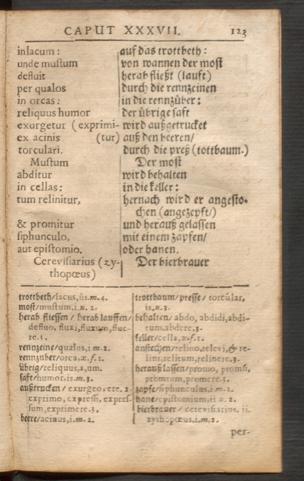 CAPUT XXXVII. 123
in lacum: auf das trottbeth:
unde mustum von wannen der most
defluit herab fließt (lauft)
per qualos durch die rennzeinen
in orcas: in die rennzüber:
reliquus humor der übrige saft
exurgetur (exprimi- wird außgetrucket
ex acinis (tur) auß den beeren/
torculari. durch die preß (tottbaum.)
Mustum Der most
abditur wird behalten
in cellas: in die keller:
tum relinitur, hernach wird er angesto-
chen (angezepft/)
& promitur und herauß gelassen
siphunculo, mit einem zapfen/
aut epistomio. oder hanen.
Cerevisiarius (zy- Der bierbrauer
thopœus)
trottbeth/lacus, ûs. m. 4.
most/mustum, i. n. 2.
herab fliessen/herab lauffen/
defluo, fluxi, fluxum, flue-
re. 3.
rennzeine/qualus, i. m. 2.
rennzüber/orca, æ. f. 1.
übrig/reliquus, a, um.
saft/humor, is. m. 3.
außtrucken/exurgeo, ere. 2.
exprimo, expressi, expres-
sum, exprimere. 3.
beere/acinus, i. m. 2.
trottbaum/presse/torcular,
is. n. 3.
behalten/abdo, abdidi, abdi-
tum, abdere. 3.
keller/cella, æ. f. 1.
anstechen/relino, relevi, & re-
lini, relitum, relinere. 3.
herauß lassen/promo, promsi,
promtum, promere. 3.
zapfe/siphunculus, i. m. 2.
hane/epistomium, ii. n. 2.
bierbrauer/cerevisiarius, ii.
zythopœus, i. m. 2.
per-